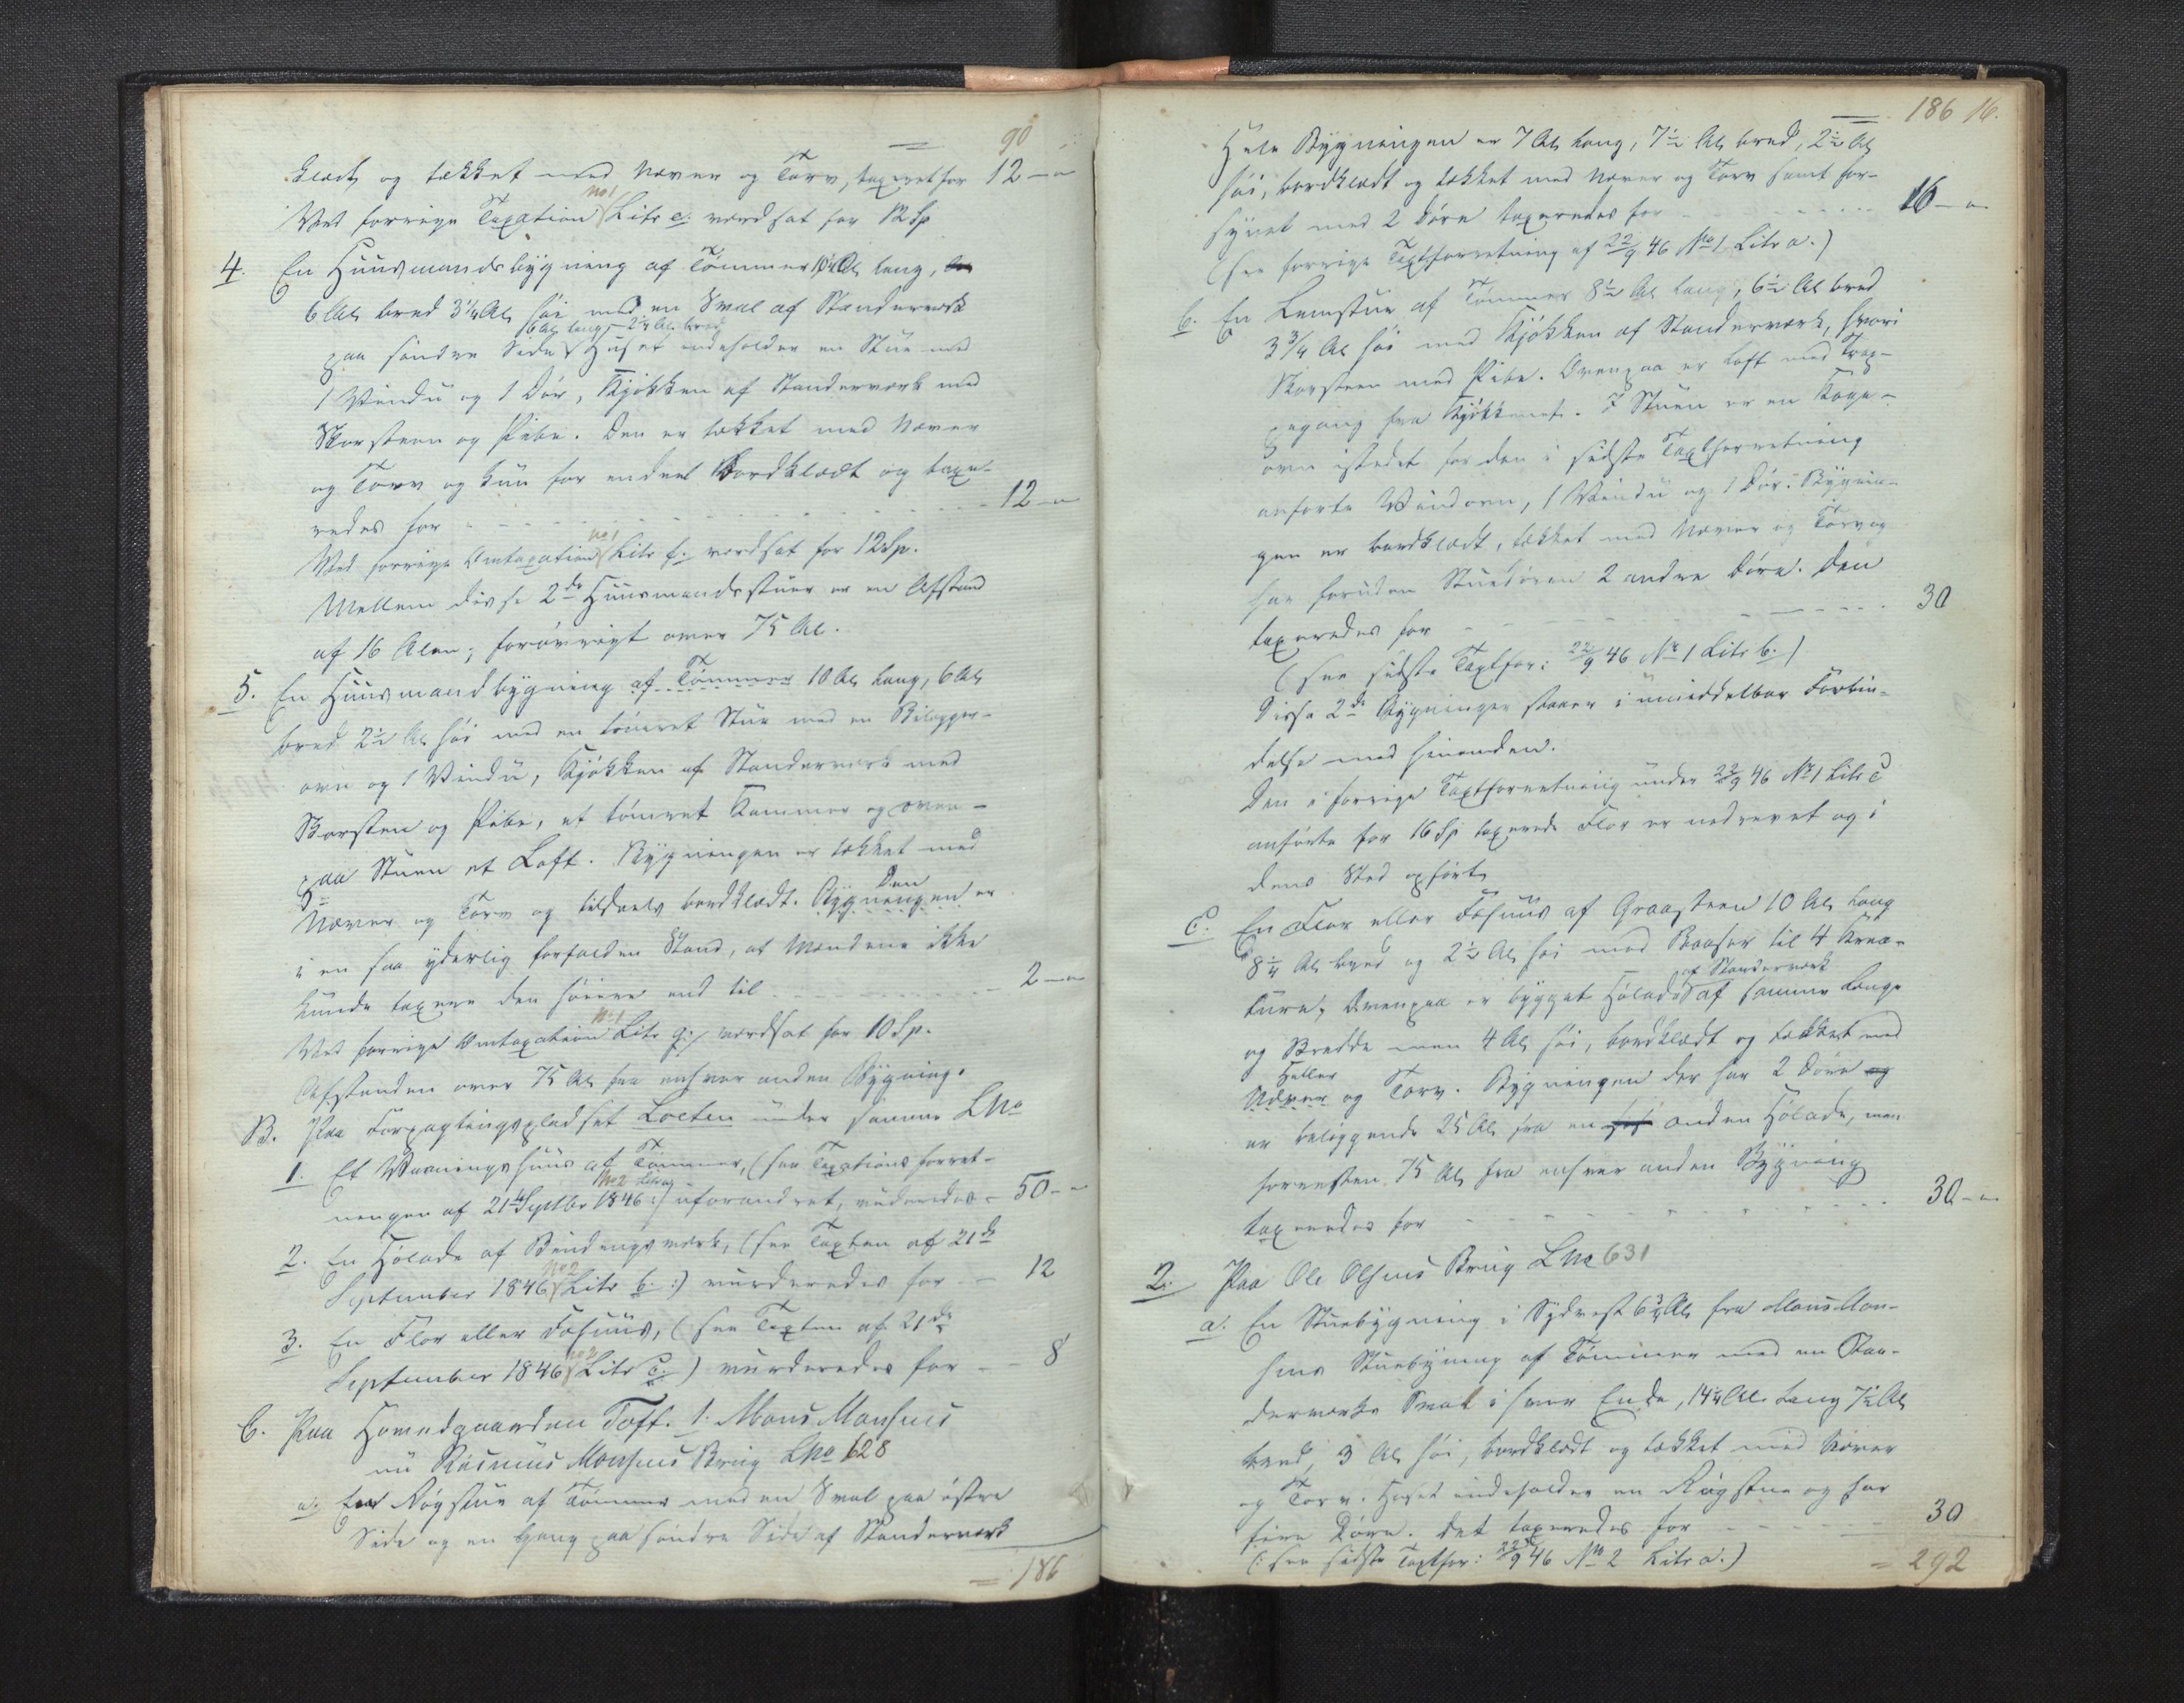 = 90
klædt og tækket med Næver og Torv, taxeret for 12 – "
No 1
Ved forrige Taxation Litr e. værdsat for 12 Sp
4. En Huusmandsbygning af Tømmer 10½ Al lang,
6 Al bred 3¼ Al høi med en Sval af Standerværk
6 Al lang 2¼ Al bred
paa søndre Side. Huset indeholder en Stue med
1 Vindu og 1 Dør, Kjøkken af Standerværk med
Skorsteen og Pibe. Den er tækket med Næver
og Torv og kun for endeel bordklædt og taxe-
redes for - - - 12 – "
No 1
Ved forrige Omtaxation Litr f. værdsat for 12 Sp.
Mellem disse 2de Huusmandsstuer er en Afstand
af 16 Alen; forøvrigt over 75 Al.
5. En Huusmandbygning af Tømmer 10 Al lang, 6 Al
bred 2½ Al høi med en tømret Stue med en Bilægger-
ovn og 1 Vindu, Kjøkken af Standerværk med
Skorsten og Pibe, et tømret Kammer og oven-
paa Stuen et Loft. Bygningen er tækket med
Den
Næver og Torv og tildeels bordklædt. Bygningen er
i en saa yderlig forfalden Stand, at Mændene ikke
kunde taxere den høiere end til - - - 2 – "
No 1
Ved forrige Omtaxation Litr g. værdsat for 10 Sp.
Afstanden over 75 Al fra enhver anden Bygning.
B. Paa Forpagtingspladset Loeten under samme LNo
1. Et Vaaningshuus af Tømmer, (see Taxations forret-
No 2 Litr a
ningen af 21de Septbr 1846 :) uforandret, vurderedes - 50 – "
2. En Hølade af Bindingsværk, (see Taxten af 21de
No 2
September 1846 Litr b. :) vurderedes for - - 12
3. En Flor eller Fæhuus, (see Taxten af 21de
No 2
September 1846 Litr c.) vurderedes for - - 8
C. Paa Hovedgaarden Toft. 1. Mons Monsens
nu Rasmus Monsens Brug LNo 628
a. En Røgstue af Tømmer med en Sval paa østre
Side og en Gang paa søndre Side af Standerværk
= 186
= 186 16.
Hele Bygningen er 7 Al lang, 7½ Al bred, 2½ Al
høi, bordklædt og tækket med Næver og Torv samt for-
synet med 2 Døre taxeredes for - - - 16 – "
(see forrige Taxtforretning af 22/9 46 No 1 Litr a.)
b. En Lemstue af Tømmer 8½ Al lang, 6½ Al bred
3 3/4 Al høi med Kjøkken af Standerværk, hvori
Skorsteen med Pibe. Ovenpaa er Loft med Trap-
pegang fra Kjøkkenet. I Stuen er en Koge-
ovn istedet for den i sidste Taxtforretning
anførte Vindovn, 1 Vindu og 1 Dør. Bygnin-
gen er bordklædt, tækket med Næver og Torv og
har foruden Stuedøren 2 andre Døre. Den
taxeredes for - - - 30
(see sidste Taxtfor: 22/9 46 No 1 Litr b.)
Disse 2de Bygninger staaer i umiddelbar Forbin-
delse med hinanden.
Den i forrige Taxtforretning under 22/9 46 No 1 Litr c
anførte for 16 Sp taxerede Flor er nedrevet og i
dens Sted opført
c. En Flor eller Fæhuus af Graasteen 10 Al lang
8¼ Al bred og 2½ Al høi med Baaser til 4 Krea-
af Standerværk
ture, Ovenpaa er bygget Hølade af samme Længe
og Bredde men 4 Al høi, bordklædt og tækket med
Heller
Næver og Torv. Bygningen der har 2 Døre og
er beliggende 25 Al fra en anden Hølade, men
forresten 75 Al fra enhver anden Bygning
taxeredes for - - - 30 – "
2. Paa Ole Olsens Brug LNo 631
a. En Stuebygning i Sydvest 6¾ Al fra Mons Mon-
sens Stuebyning af Tømmer med en Stan-
derværks Sval i hver Ende, 14¼ Al. lang 7½ Al
bred, 3 Al høi, bordklædt og tækket med Næver
og Torv. Huset indeholder en Røgstue og har
fire Døre. Det taxeredes for - - - 30
(: see sidste Taxtfor: 22/9 46 No 2 Litr a.)
= 292